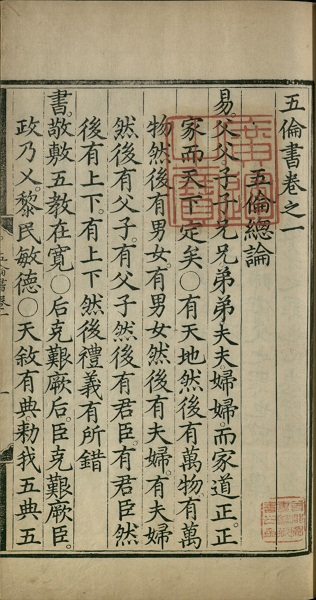 五倫書卷之一
五倫總論
易。父父子子兄兄弟弟夫夫婦婦。而家道正。正
家而天下定矣○有天地然後有萬物。有萬
物然後有男女。有男女然後有夫婦。有夫婦
然後有父子。有父子然後有君臣。有君臣然
後有上下。有上下然後禮義有所錯
書。敬敷五教在寬○后克艱厥后。臣克艱厥臣。
政乃乂。黎民敏德○天敘有典勑我五典五